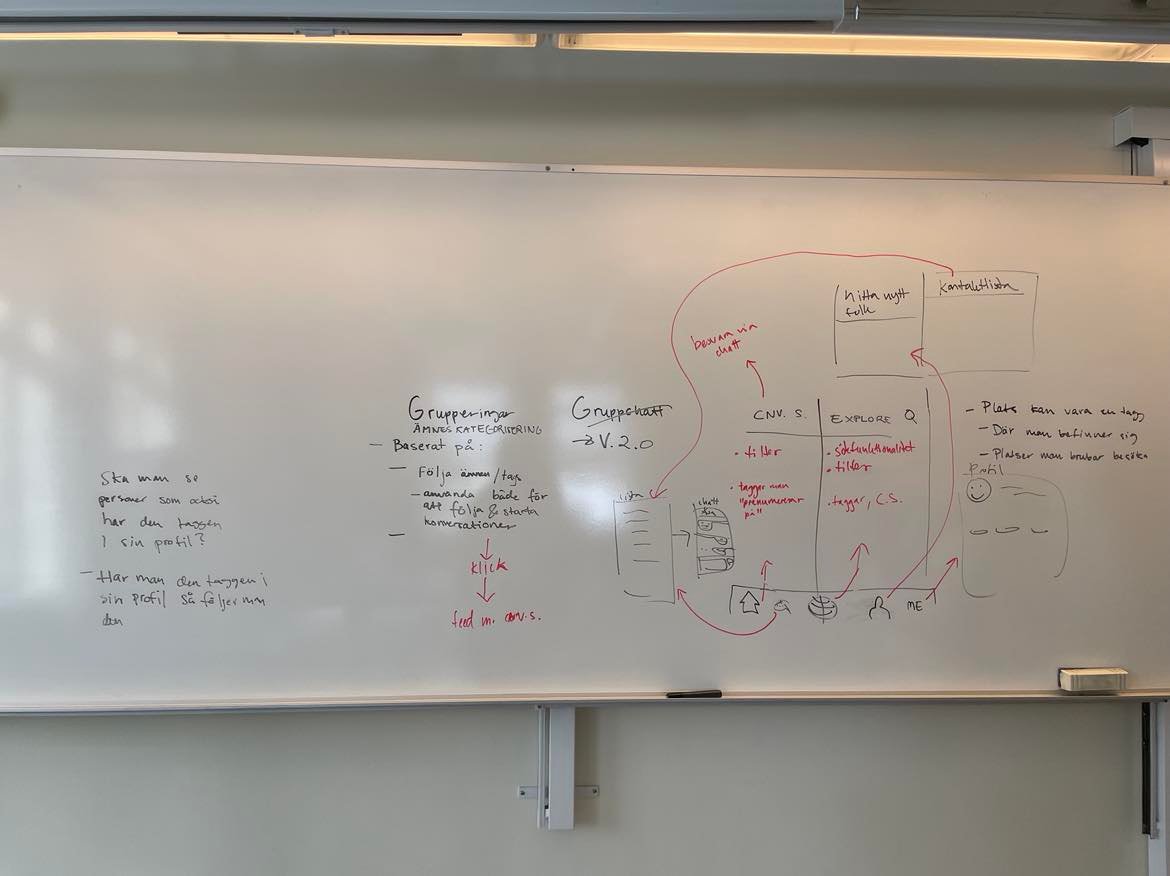 Ska man se
personer som också
har den taggen
i sin profil?
- Har man den taggen i
sin profil så följer man
den
Grupperingar
ÄMNESKATEGORISERING
- Baserat på:
- Följa ämnen/tags
- använda både för
att följa & starta
konversationer
-
klick
feed m. conv.s.
Gruppchatt
→ V.2.0
lista
chatt
besvara via
chatt
CNV. S.
• filter
• taggar man
"prenumererar
på"
EXPLORE
• sökfunktionalitet
• filter
• taggar, C.S.
hitta nytt
folk
Kontaktlista
ME
- Plats kan vara en tagg
- Där man befinner sig
- Platser man brukar besöka
Profil